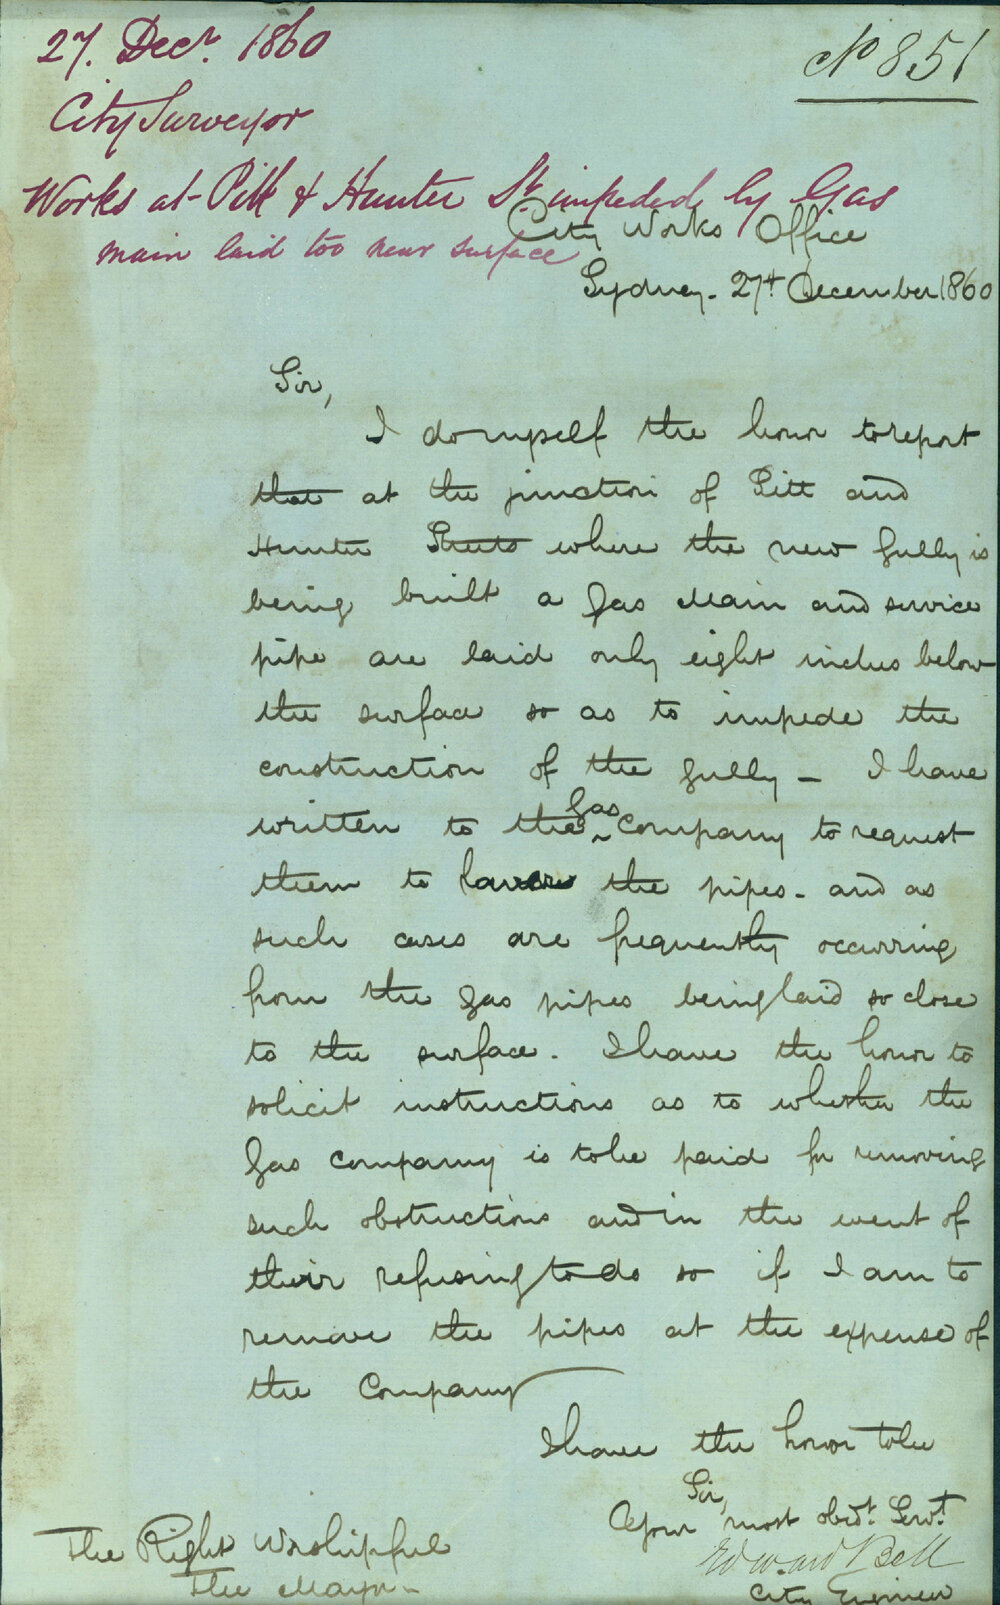 27. Decr. 1860
No 851
City Surveyor
Works at Pitt & Hunter St impeded by Gas
main laid too near surface
City Works Office
Sydney. 27th December 1860
Sir,
I do myself the honor to report
that at the junction of Pitt and
Hunter Streets where the new gully is
being built a Gas Main and service
pipe are laid only eight inches below
the surface so as to impede the
construction of the gully – I have
written to the Gas Company to request
them to lower the pipes – and as
such cases are frequently occurring
from the gas pipes being laid so close
to the surface. I have the honor to
solicit instructions as to whether the
Gas Company is to be paid for removing
such obstructions and in the event of
their refusing to do so if I am to
remove the pipes at the expense of
the Company
I have the honor to be
Sir,
Your most obdt. Servt.
Edward Bell
City Engineer
The Right Worshipful
The Mayor –